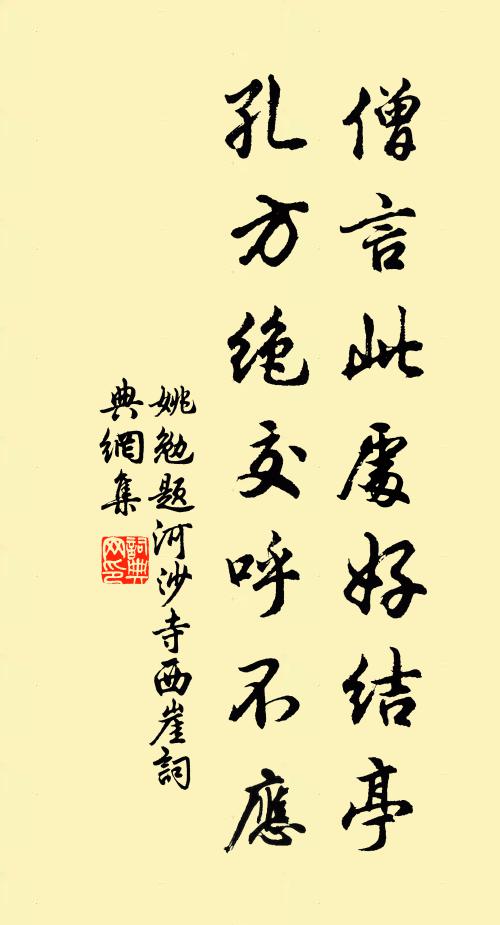 僧言此處好結亭
孔方絶交呼不應
姚勉題河沙寺西崖詞
典網集
詞典網印